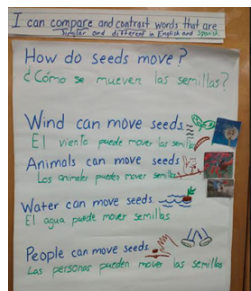 I can compare and contrast words that are
similar and different in English and Spanish
How do seeds move?
¿Cómo se mueven las semillas?
Wind can move seeds
El viento puede mover las semillas
Animals can move seeds
Los animales pueden mover las semillas
Water can move seeds
El agua puede mover semillas
People can move seeds
Las personas pueden mover las semillas